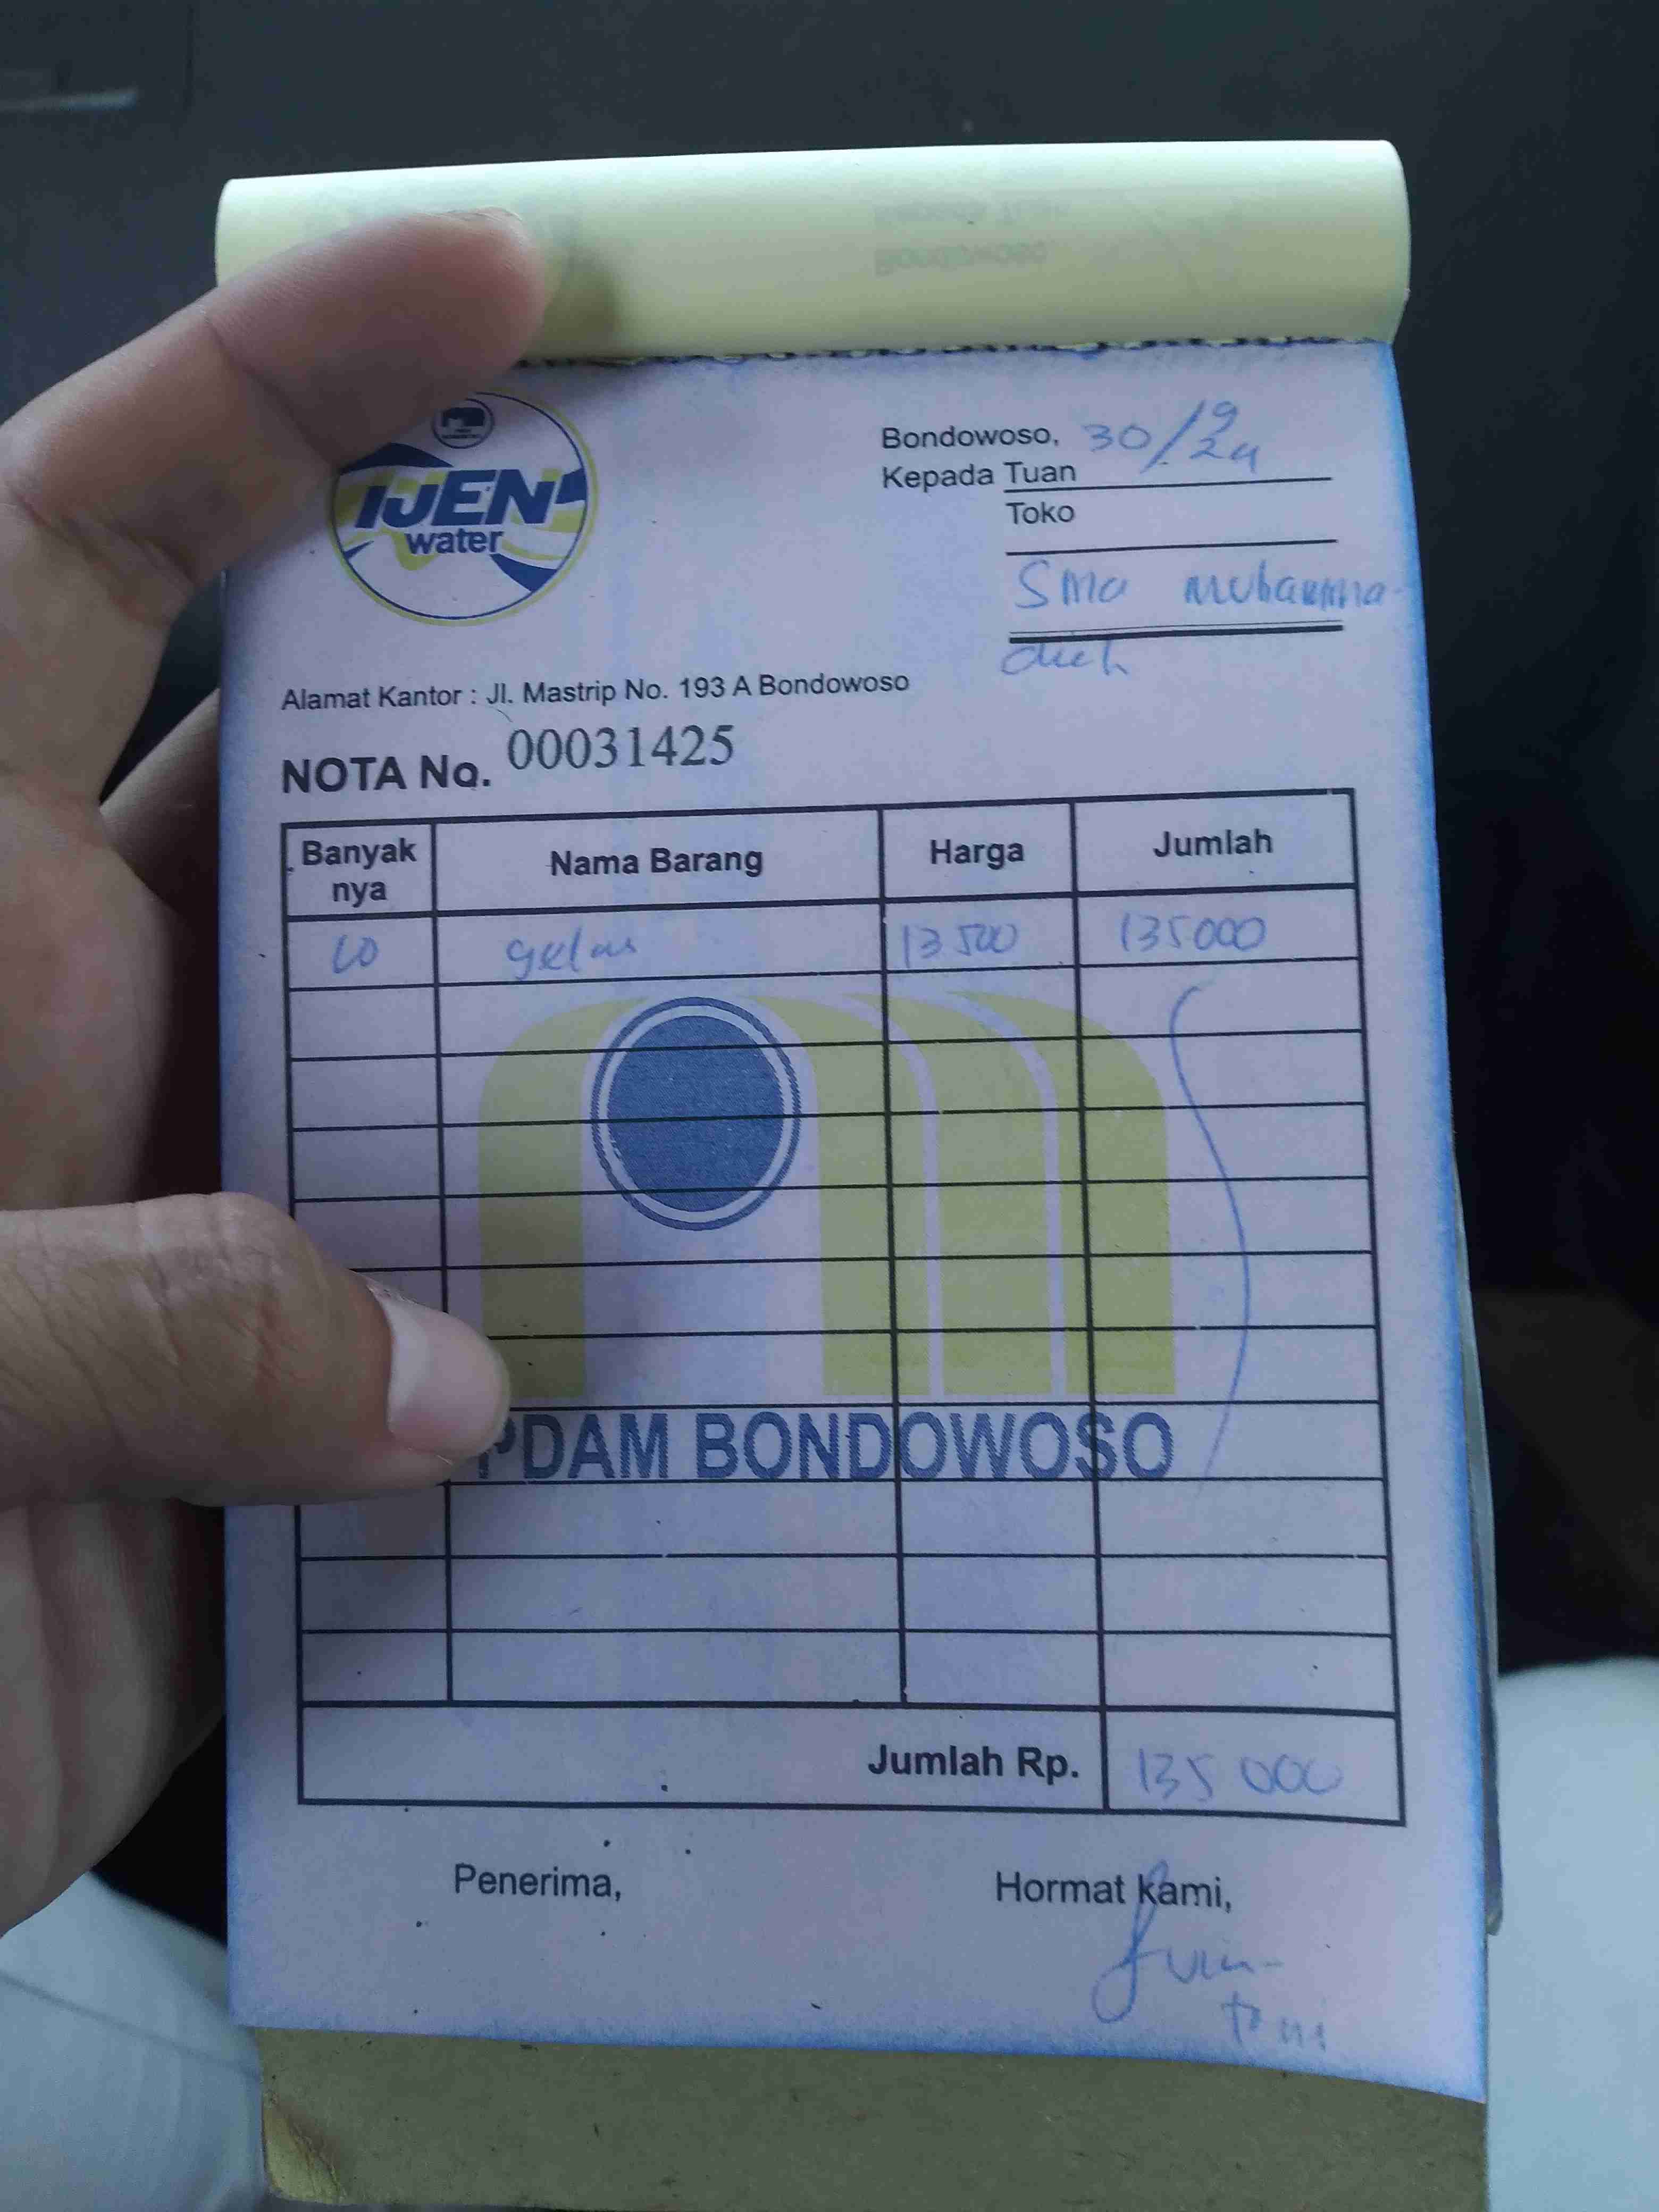 IJEN
water
Bondowoso, 30/9/24
Kepada Tuan
Toko
SMA Muhamma-
diyah
Alamat Kantor : Jl. Mastrip No. 193 A Bondowoso
NOTA No. 00031425
Banyak nya Nama Barang Harga Jumlah
10 gelas 13 500 135 000
PDAM BONDOWOSO
Jumlah Rp. 135 000
Penerima, Hormat kami,